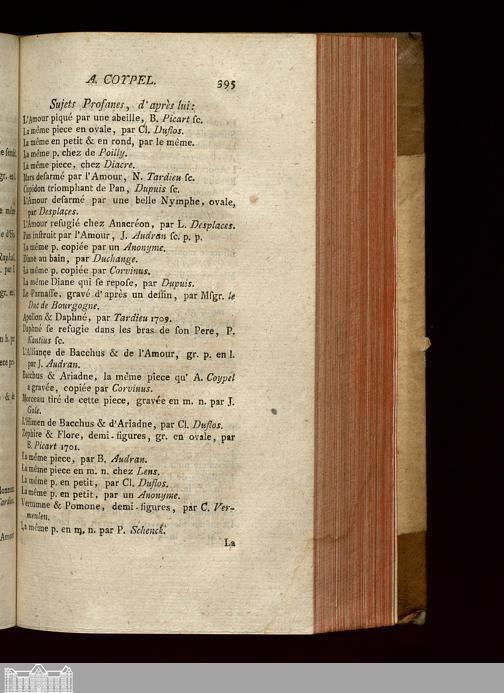 A. COYPEL. 395
Sujets Profanes, d'après lui:
L'Amour piqué par une abeille, B. Picart sc.
La même piece en ovale, par Cl. Duflos.
La même en petit & en rond, par le même.
La même p. chez de Poilly.
La même piece, chez Diacre.
Mars desarmé par l'Amour, N. Tardieu sc.
Cupidon triomphant de Pan, Dupuis sc.
L'Amour desarmé par une belle Nymphe, ovale,
par Desplaces.
L'Amour refugié chez Anacréon, par L. Desplaces.
Pan instruit par l'Amour, J. Audran sc. p. p.
La même p. copiée par un Anonyme.
Diane au bain, par Duchange.
La même p. copiée par Corvinus.
La même Diane qui se repose, par Dupuis.
Le Parnasse, gravé d'après un dessin, par Msgr. le
Duc de Bourgogne.
Apollon & Daphné, par Tardieu 1709.
Daphné se refugie dans les bras de son Pere, P.
sc.
L'Alliance de Bacchus & de l'Amour, gr. p. en l.
par J. Audran.
Bacchus & Ariadne, la même piece qu' A. Coypel
a gravée, copiée par Corvinus.
Morceau tiré de cette piece, gravée en m. n. par J.
Gole.
L'Himen de Bacchus & d'Ariadne, par Cl. Duflos.
Zephire & Flore, demi-figures, gr. en ovale, par
B. Picart 1701.
La même piece, par B. Audran.
La même piece en m. n. chez Lens.
La même p. en petit, par Cl. Duflos.
La même p. en petit, par un Anonyme.
Vertumne & Pomone, demi-figures, par C. Ver-
meulen.
La même p. en m. n. par P. Schenck.
La